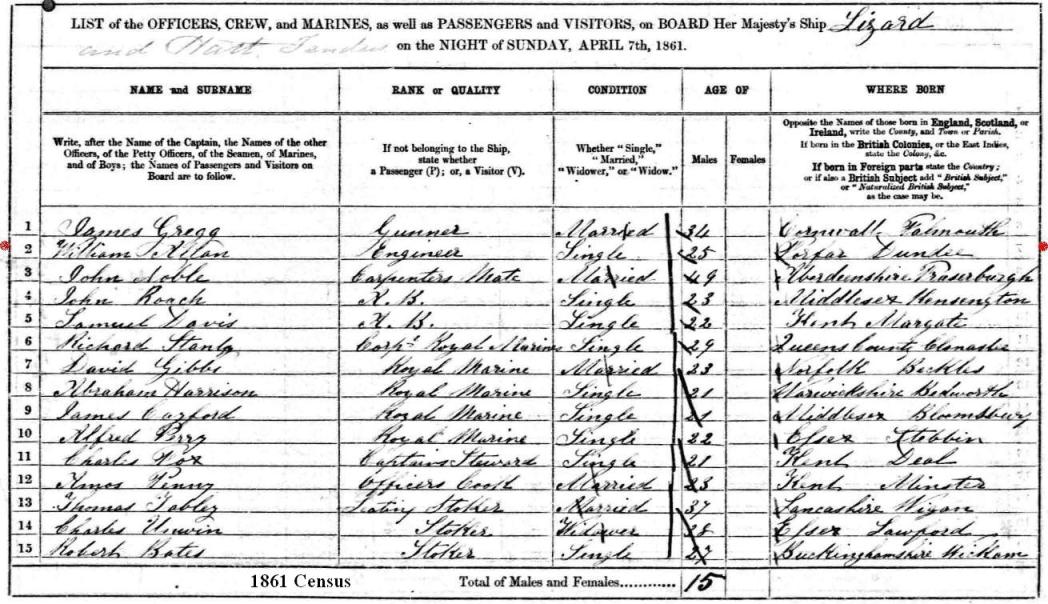 LIST of the OFFICERS, CREW, and MARINES, as well as PASSENGERS and VISITORS, on BOARD Her Majesty's Ship Lizard
and Tender on the NIGHT of SUNDAY, APRIL 7th, 1861.
NAME and SURNAME RANK or QUALITY CONDITION AGE OF WHERE BORN
Write, after the Name of the Captain, the Names of the other Officers, of the Petty Officers, of the Seamen, of Marines, and of Boys; the Names of Passengers and Visitors on Board are to follow.
If not belonging to the Ship, state whether a Passenger (P); or, a Visitor (V).
Whether "Single," "Married," "Widower," or "Widow."
Males Females
Opposite the Names of those born in England, Scotland, or Ireland, write the County, and Town or Parish.
If born in the British Colonies, or the East Indies, state the Colony, &c.
If born in Foreign parts state the Country; or if also a British Subject add "British Subject," or "Naturalized British Subject," as the case may be.
1 James Gregg Gunner Married 34 Cornwall Falmouth
2 William Allan Engineer Single 25 Forfar Dundee
3 John Noble Carpenters Mate Married 49 Aberdeenshire Fraserburgh
4 John Roach A.B. Single 23 Middlesex Kensington
5 Samuel Davis A.B. Single 22 Kent Margate
6 Richard Corpl Royal Marines Single 29 Queens County
7 David Gibbs Royal Marine Married 23 Norfolk Beckles
8 Abraham Harrison Royal Marine Single 21 Warwickshire Bedworth
9 James Royal Marine Single 21 Middlesex Bloomsbury
10 Alfred Perry Royal Marine Single 22 Essex Stebbin
11 Charles Captains Steward Single 21 Kent Deal
12 Amos Officers Cook Married 23 Kent Minster
13 Thomas Stoker Married 37 Lancashire Wigan
14 Charles Unwin Stoker Widower 28 Essex Lawford
15 Robert Bates Stoker Single 27 Buckinghamshire Wickam
1861 Census Total of Males and Females............ 15